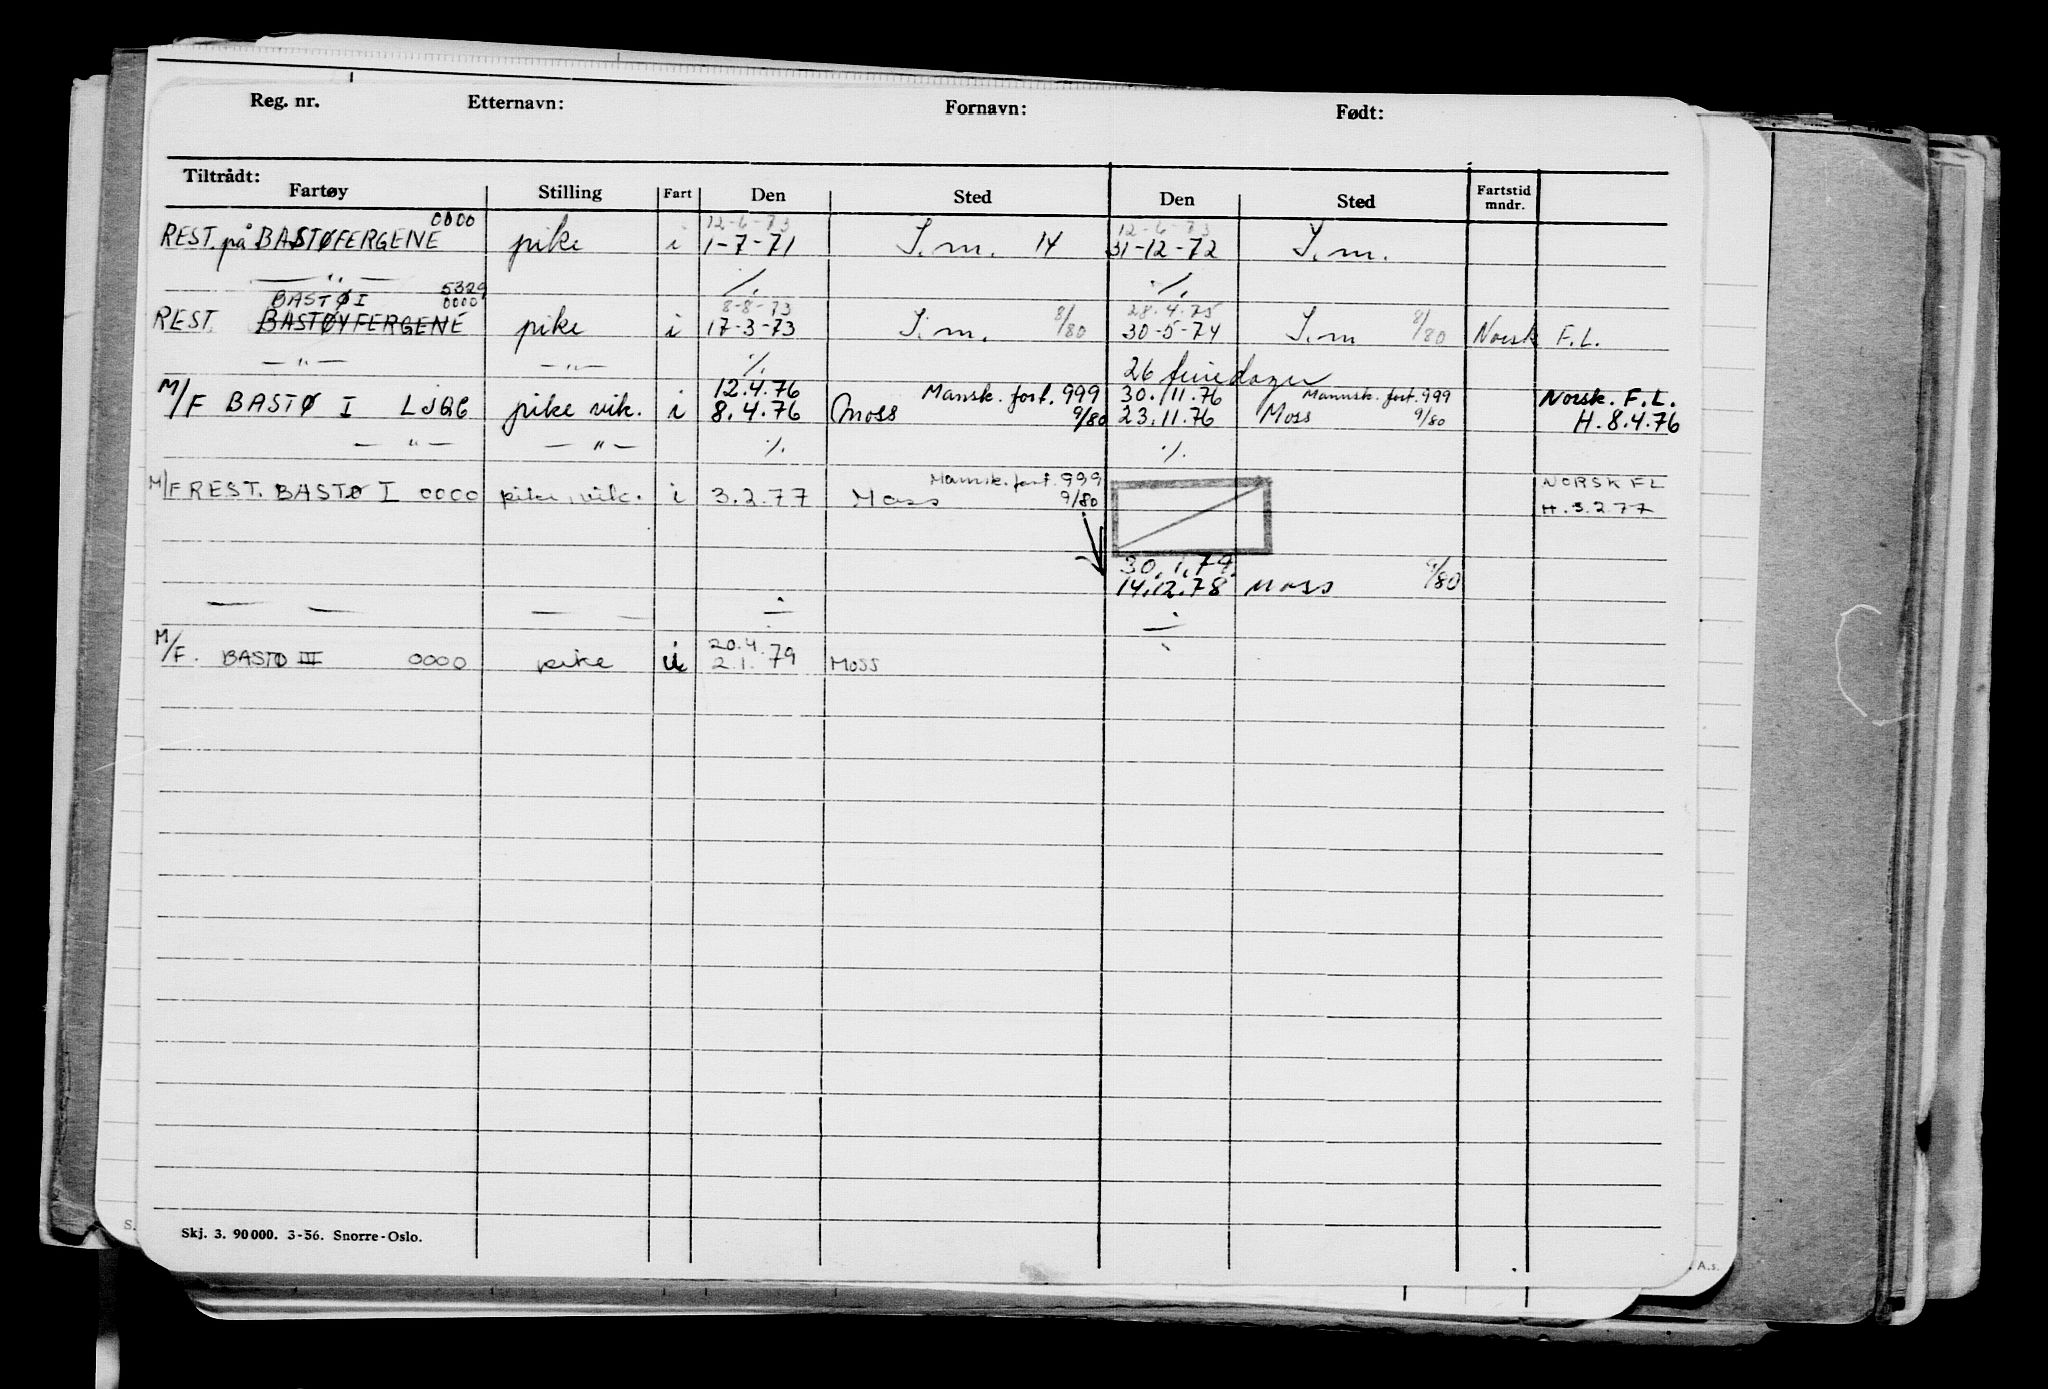 Reg. nr. Etternavn: Fornavn: Født:
Tiltrådt:
Fartøy Stilling Fart Den Sted Den Sted Fartstid mndr.
0000 12-6-73 12-6-73
REST. på BASTØFERGENE pike i 1-7-71 S.m. 14 31-12-72 S.m.
— " — ./. ./.
BASTØ I 5329
0000 8-8-73 28.4.75
REST. BASTØYFERGENE pike i 17-3-73 S.m. 8/80 30-5-74 S.m 8/80 Norsk F.L.
— " — — " — ./. 26 feriedager
12.4.76 Mansk. forl. 999 30.11.76 Mannsk. forl. 999 Norsk. F.L.
M/F BASTØ I LJQG pike vik. i 8.4.76 Moss 9/80 23.11.76 Moss 9/80 H. 8.4.76
— " — — " — ./. ./.
Mannsk. forl. 999 NORSK FL
M/F REST. BASTØ I 0000 pike, vik. i 3.2.77 Moss 9/80 H. 3.2.77
30.1.79.
14.12.78 Moss 9/80
— — — ÷ ÷
20.4.
M/F. BASTØ III 0000 pike i 2.1.79 Moss
Skj. 3. 90 000. 3-56. Snorre-Oslo.
S.
A.s.